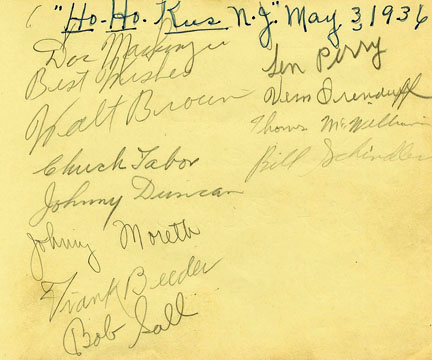 "Ho-Ho-Kus N.J." May 3, 1936
Doc Mackenzie
Best Wishes
Walt Brown
Chuck Tabor
Johnny Duncan
Johnny Moretti
Frank Beeder
Bob Sall
Len Perry
Vern Orenduff
Thomas McWilliams
Bill Schindler